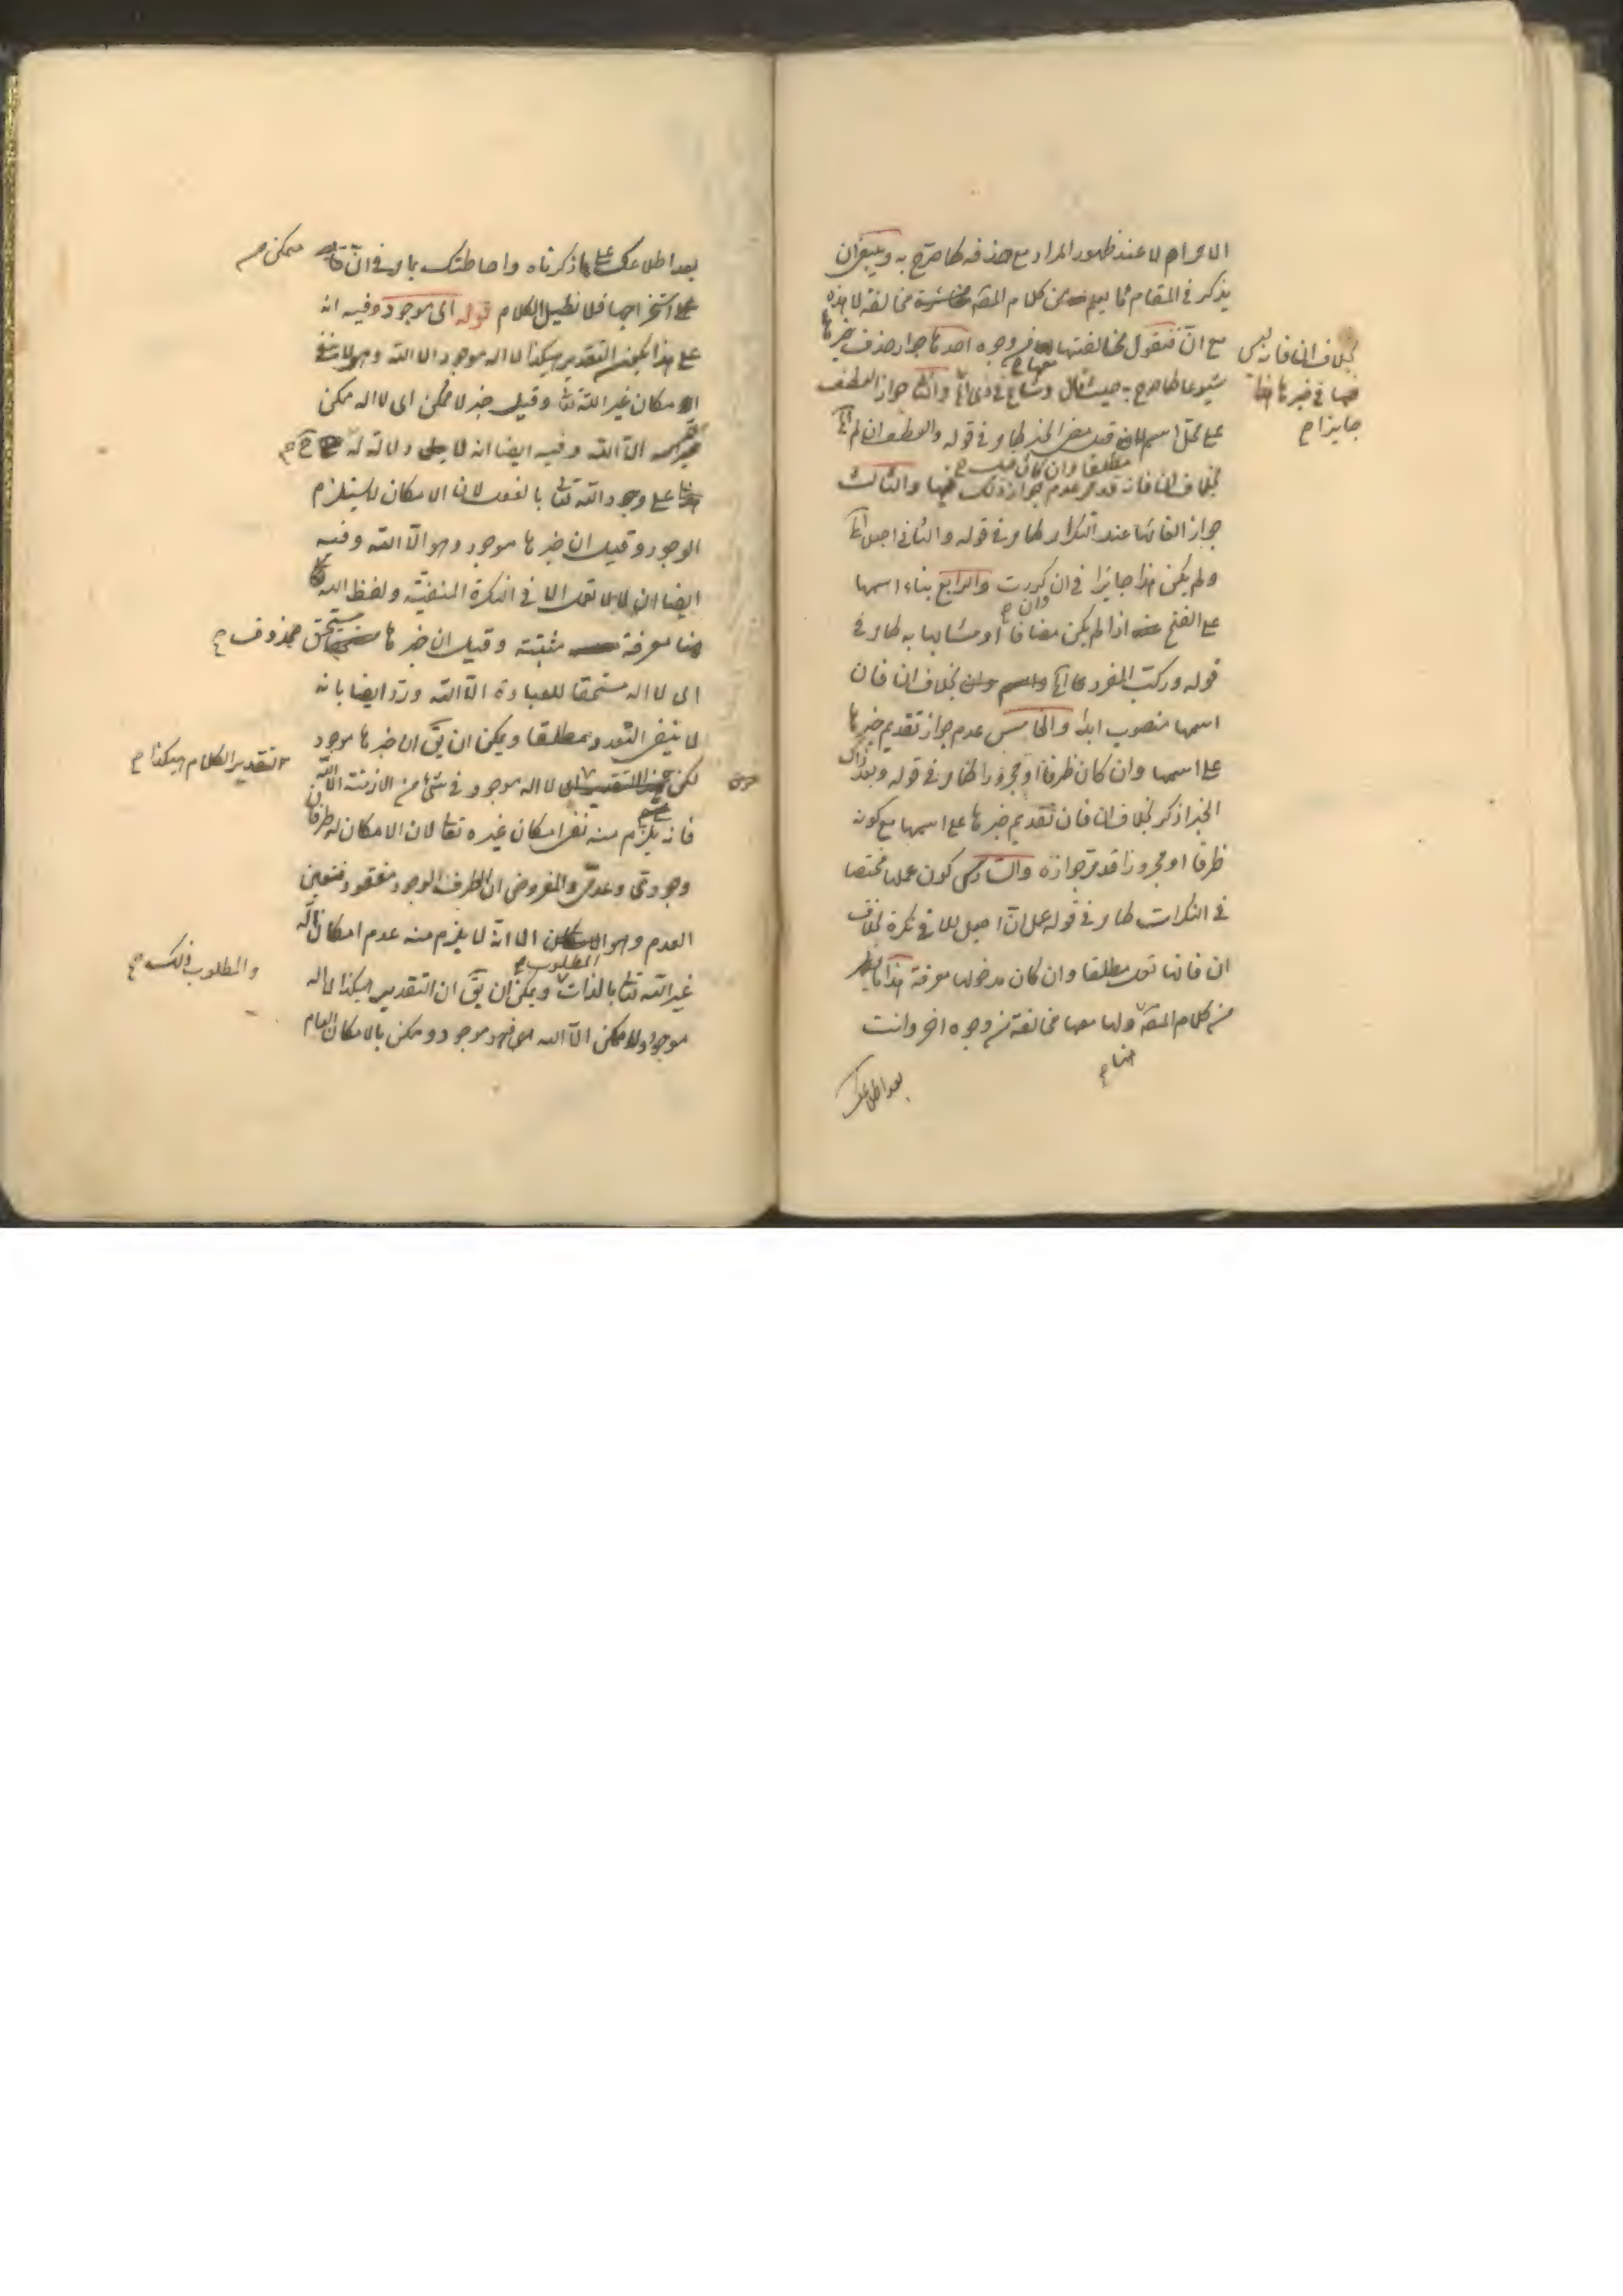 الا وام لا عند ظهور المراد مع حذفه كما صرح به وينبغي ان
يذكر في المقام ما يعلم من كلام المصّ مخالفة لا هذه
مع انّ فنقول مخالفتها معها من وجوه احدها جواز حذف خبرها
شيوعا كما صرح به حيث قال وشاع في ذي الخ والثاني جواز العطف
على محل اسم قبل مضي الخبر كما مر في قوله والعطف ان لم الخ
بخلاف ان فانه قد مر عدم جواز ذلك فيها والثالث
جواز الغائها عند التكرار كما مر في قوله والثاني اجعل الخ
ولم يكن هذا جايزا في ان وان كررت والرابع بناء اسمها
على الفتح اذا لم يكن مضافا او مشابها به كما مر في
قوله وركب المفرد الخ بخلاف ان فان
اسمها منصوب ابدا والخامس عدم جواز تقديم خبرها
على اسمها وان كان ظرفا او مجرورا كما مر في قوله وبعد ذاك
الخبر اذكر بخلاف ان فان تقديم خبرها على اسمها مع كونه
ظرفا او مجرورا قد مر جوازه والسادس كون عملها مختصا
في النكرات كما مر في قوله عمل انّ اجعل للا في نكرة بخلاف
ان فانها تعمل مطلقا وان كان مدخولها معرفة هذا ما يظهر
من كلام المصّ هنا ولها معها مخالفة من وجوه اخر وانت
بعد اطلاعك
بخلاف ان فانه ليس
فيها في خبرها
جايزا
مطلقا وان كان
بعد اطلاعك على ما ذكرناه واحاطتك بما مر في انّ ممكن
على استخراجها فلا نطيل الكلام قوله اي موجود وفيه انه
على هذا يكون التقدير هكذا لا اله موجود الا الله وهو لا ينفي
امكان غير الله تعالى وقيل خبر لا ممكن اي لا اله ممكن
الّا الله وفيه ايضا انه لا دلالة له
على وجود الله تعالى بالفعل لان الامكان لا يستلزم
الوجود وقيل ان خبرها موجود وهو الّا الله وفيه
ايضا ان لا لا تعمل الا في النكرة المنفيّة ولفظ الله
هنا معرفة مثبتة وقيل ان خبرها مستحق محذوف
اي لا اله مستحقا للعبادة الّا الله وردّ ايضا بانه
لا ينفي التعدد مطلقا ويمكن ان يقّ ان خبرها موجود
لكن لا اله موجود في شئ من الازمنة الّا الله
فانه يلزم منه نفي امكان غيره تعالى لان الامكان له طرفان
وجودي وعدميّ والمفروض ان الطرف الوجود مفقود فتعين
العدم وهو المطلوب الا انه لا يلزم منه عدم امكان اله
غير الله تعالى بالذات ويمكن ان يقّ ان التقدير هكذا لا اله
موجود ولا ممكن الّا الله فهو موجود وممكن بالامكان العام
التقدير الكلام هكذا
والمطلوب ذلك